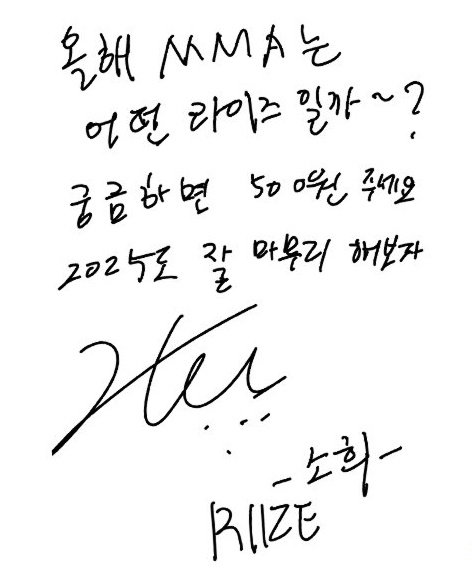 올해 MMA는
어떤 라이즈 일까~?
궁금하면 500원 주세요
2025도 잘 마무리 해보자
-소희-
RIIZE